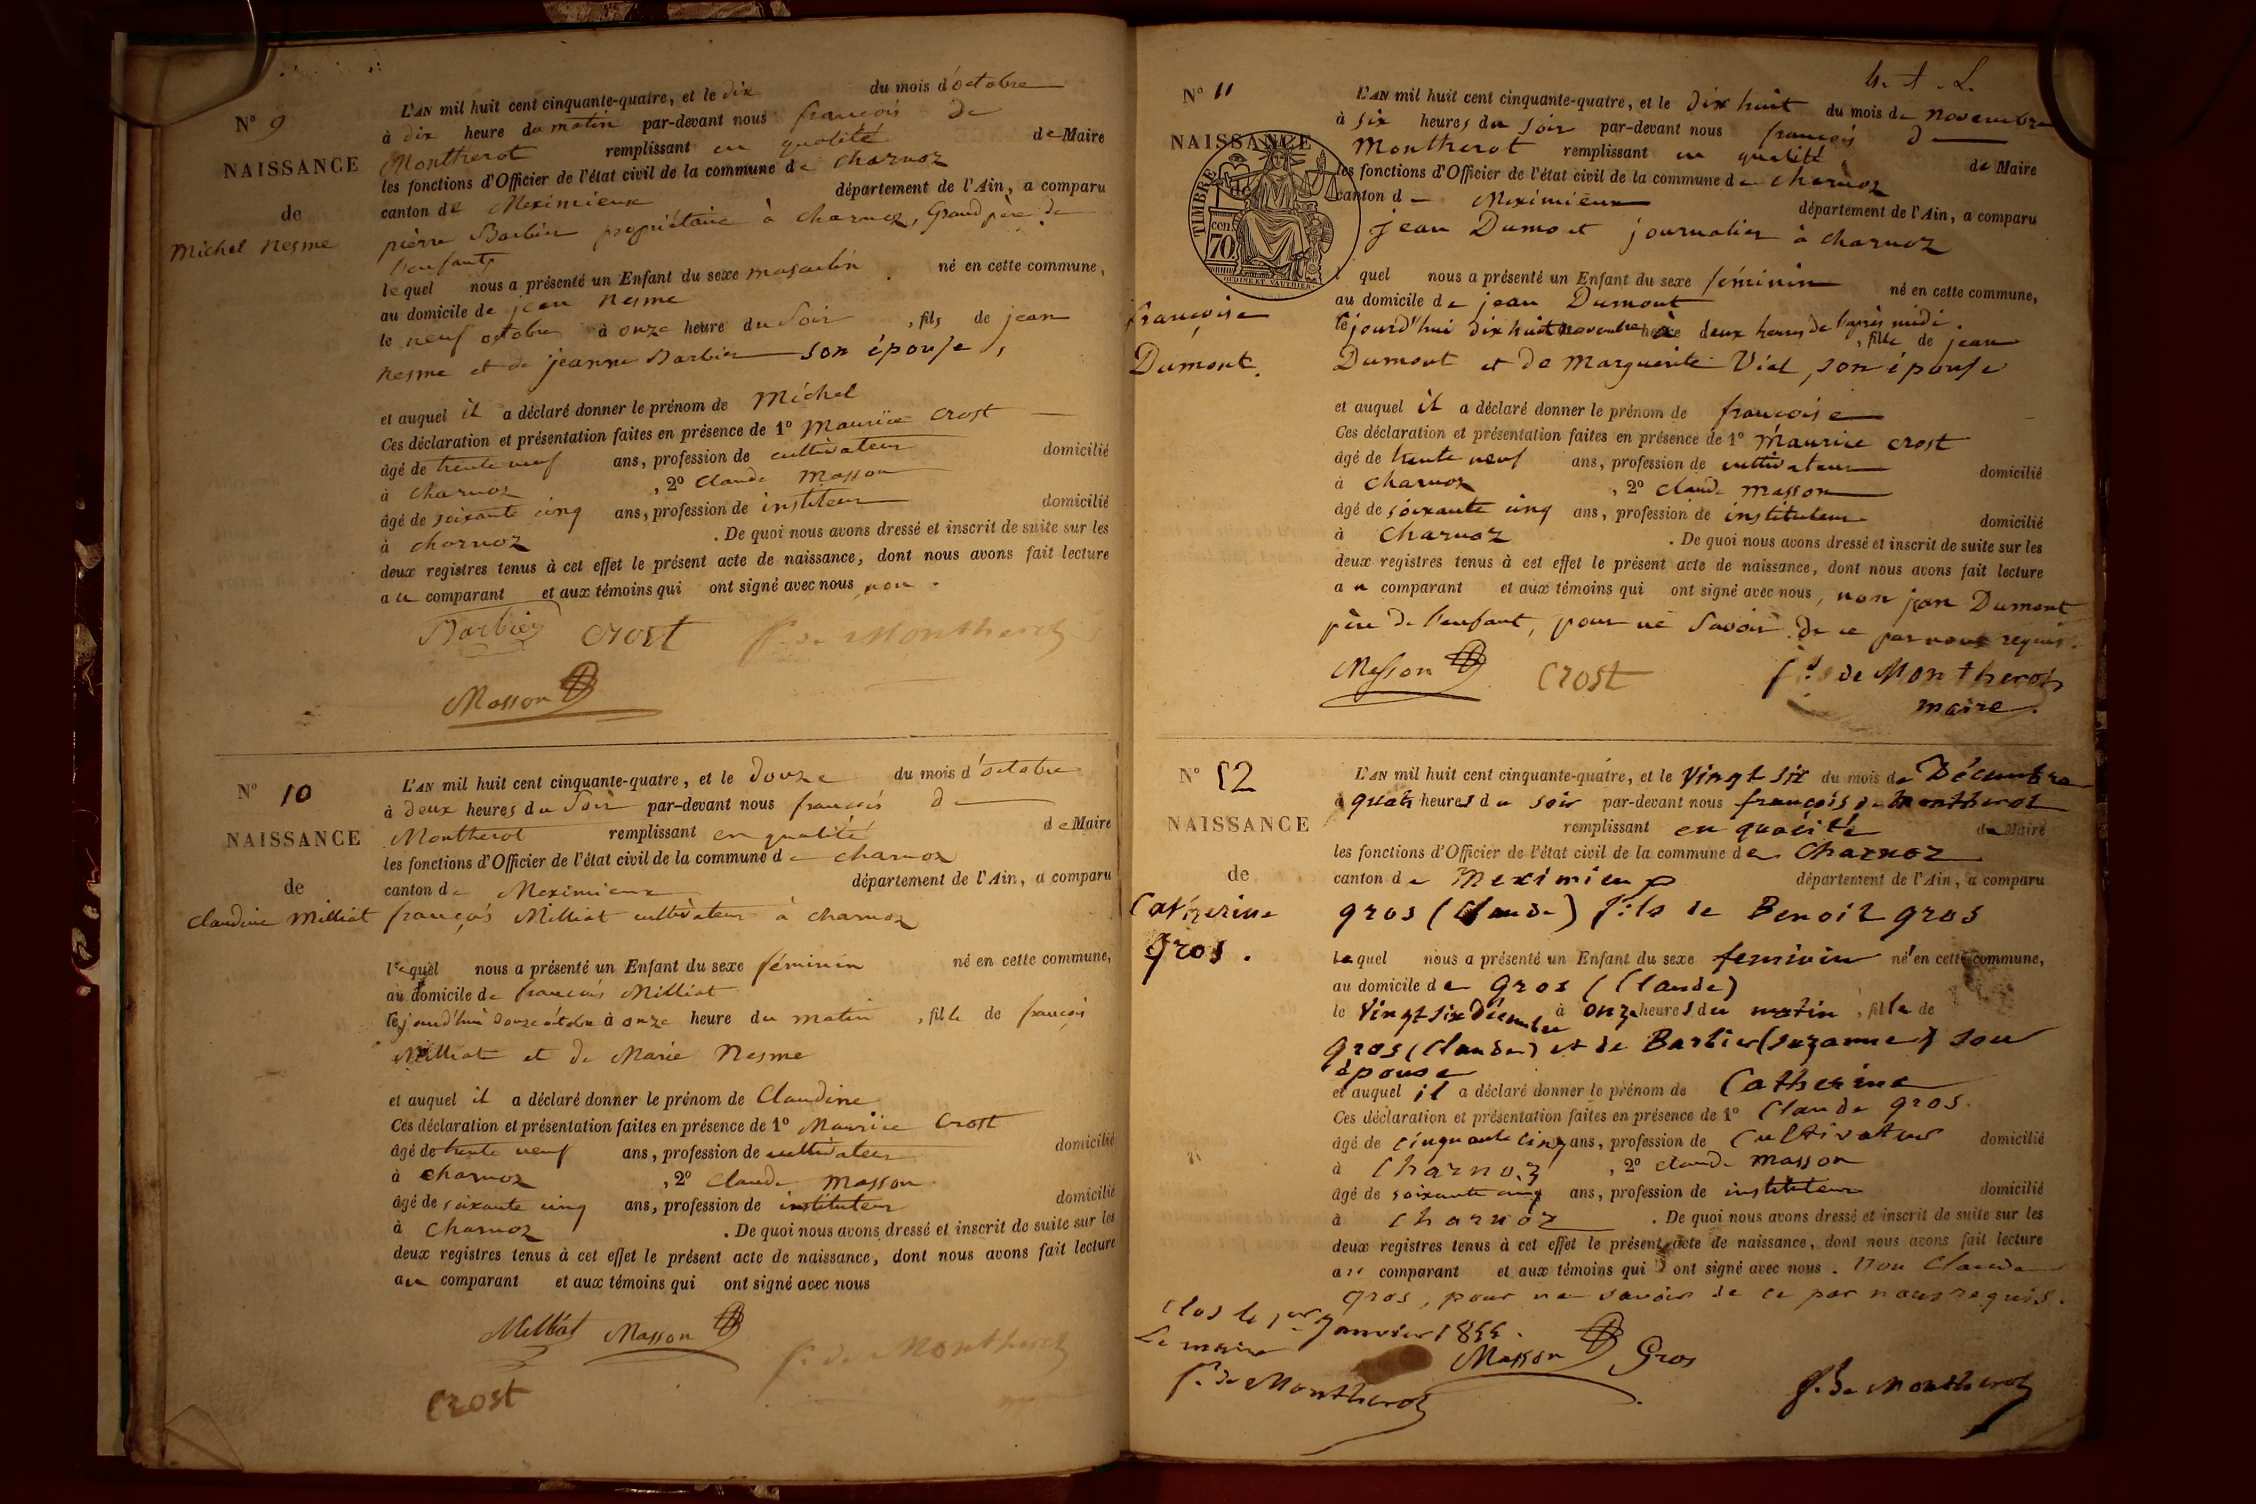 N° 9
NAISSANCE
de
Michel Nesme
L'AN mil huit cent cinquante-quatre, et le dix du mois d'octobre
à dix heure du matin par-devant nous françois de
Montherot remplissant en qualité de Maire
les fonctions d'Officier de l'état civil de la commune de Charnoz
canton de Meximieux département de l'Ain, a comparu
pierre Barbier propriétaire à Charnoz, Grand père de
l'enfant,
lequel nous a présenté un Enfant du sexe masculin né en cette commune,
au domicile de jean Nesme
le neuf octobre à onze heure du Soir, fils de jean
Nesme et de jeanne Barbier son épouse,
et auquel il a déclaré donner le prénom de Michel
Ces déclaration et présentation faites en présence de 1° Maurice Crost
âgé de trente neuf ans, profession de cultivateur domicilié
à Charnoz, 2° Claude Masson
âgé de soixante cinq ans, profession de instituteur domicilié
à Charnoz. De quoi nous avons dressé et inscrit de suite sur les
deux registres tenus à cet effet le présent acte de naissance, dont nous avons fait lecture
au comparant et aux témoins qui ont signé avec nous
Barbier Crost f. de Montherot
Masson
N° 10
NAISSANCE
de
Claudine Milliat
L'AN mil huit cent cinquante-quatre, et le Douze du mois d'octobre
à deux heures du Soir par-devant nous françois de
Montherot remplissant en qualité de Maire
les fonctions d'Officier de l'état civil de la commune de Charnoz
canton de Meximieux département de l'Ain, a comparu
françois Milliat cultivateur à Charnoz
lequel nous a présenté un Enfant du sexe féminin né en cette commune,
au domicile de françois Milliat
le jourd'hui douze octobre à onze heure du matin, fille de françois
Milliat et de Marie Nesme
et auquel il a déclaré donner le prénom de Claudine
Ces déclaration et présentation faites en présence de 1° Maurice Crost
âgé de trente neuf ans, profession de cultivateur domicilié
à Charnoz, 2° Claude Masson
âgé de soixante cinq ans, profession de instituteur domicilié
à Charnoz. De quoi nous avons dressé et inscrit de suite sur les
deux registres tenus à cet effet le présent acte de naissance, dont nous avons fait lecture
au comparant et aux témoins qui ont signé avec nous
Milliat Masson f. de Montherot
Crost
N° 11
NAISSANCE
TIMBRE
70
françoise
Dumont.
L'AN mil huit cent cinquante-quatre, et le dix huit du mois de novembre
à six heures du Soir par-devant nous françois D
Montherot remplissant en qualité de Maire
les fonctions d'Officier de l'état civil de la commune de Charnoz
canton d Meximieux département de l'Ain, a comparu
jean Dumont journalier à Charnoz
quel nous a présenté un Enfant du sexe féminin né en cette commune,
au domicile de jean Dumont
le jourd'hui dix huit novembre à deux heures de l'après midi, fille de jean
Dumont et de Marguerite Vial, son épouse
et auquel il a déclaré donner le prénom de françoise
Ces déclaration et présentation faites en présence de 1° Maurice Crost
âgé de trente neuf ans, profession de cultivateur domicilié
à Charnoz, 2° Claude Masson
âgé de soixante cinq ans, profession de instituteur domicilié
à Charnoz. De quoi nous avons dressé et inscrit de suite sur les
deux registres tenus à cet effet le présent acte de naissance, dont nous avons fait lecture
au comparant et aux témoins qui ont signé avec nous, non jean Dumont
père de l'enfant, pour ne Savoir de ce par nous requis.
Masson Crost de Montherot
maire.
N° 12
NAISSANCE
de
Catherine
Gros.
L'AN mil huit cent cinquante-quatre, et le Vingt six du mois de Décembre
à quatr heures du soir par-devant nous françois de Montherot
remplissant en qualité de Maire
les fonctions d'Officier de l'état civil de la commune de Charnoz
canton de Meximieux département de l'Ain, a comparu
gros (Claude) fils de Benoit gros
lequel nous a présenté un Enfant du sexe feminin né en cette commune,
au domicile de Gros (Claude)
le Vingt six Décembre à onze heures du matin, fille de
gros (Claude) et de Barbier (suzanne) son
épouse
et auquel il a déclaré donner le prénom de Catherine
Ces déclaration et présentation faites en présence de 1° Claude gros.
âgé de cinquante cinq ans, profession de Cultivateur domicilié
à Charnoz, 2° Claude Masson
âgé de soixante cinq ans, profession de instituteur domicilié
à Charnoz. De quoi nous avons dressé et inscrit de suite sur les
deux registres tenus à cet effet le présent acte de naissance, dont nous avons fait lecture
au comparant et aux témoins qui ont signé avec nous. Non Claude
gros, pour ne savoir de ce par nous requis.
Clos le 1er Janvier 1855.
Le maire
f. de Montherot
Masson Gros
f. de Montherot